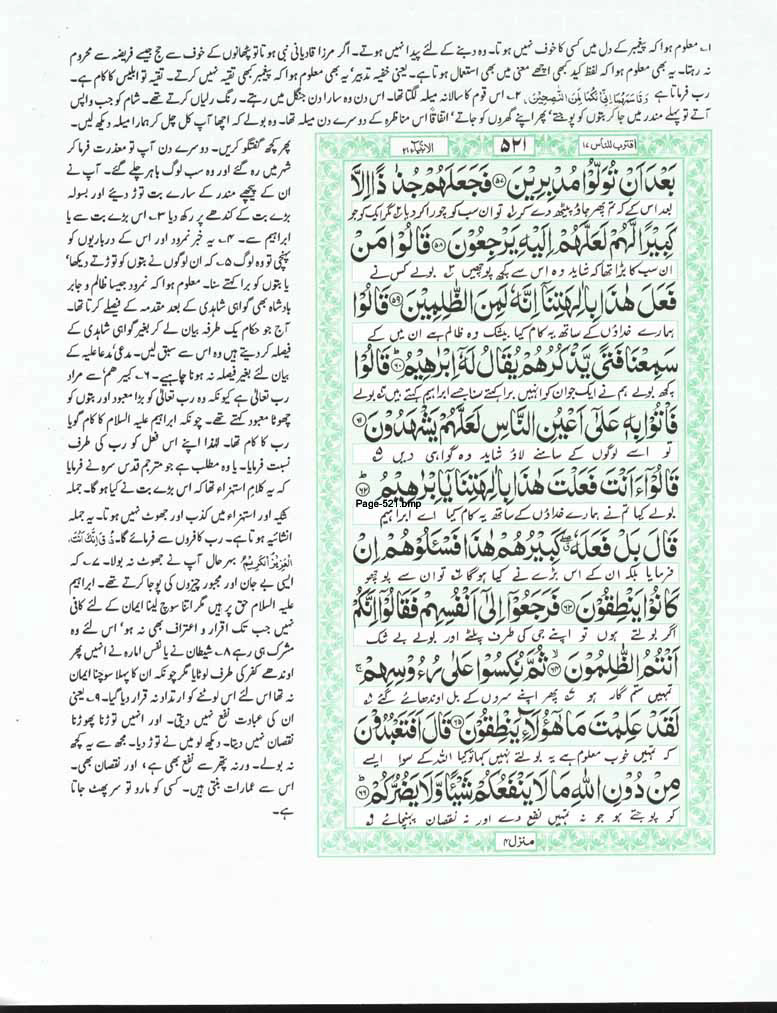 ۱۔ معلوم ہوا کہ پیغمبر کے دل میں کسی کا خوف نہیں ہوتا۔ وہ دبنے کے لئے پیدا نہیں ہوتے۔ اگر مرزا قادیانی نبی ہوتا تو پٹھانوں کے خوف سے حج جیسے فریضہ سے محروم
نہ رہتا۔ یہ بھی معلوم ہوا کہ لفظ کید کبھی اچھے معنی میں بھی استعمال ہوتا ہے۔ یعنی خفیہ تدبیر، یہ بھی معلوم ہوا کہ پیغمبر کبھی تقیہ نہیں کرتے۔ تقیہ تو ابلیس کا کام ہے۔
رب فرماتا ہے وَقَاسَمَهُمَا إِنِّي لَكُمَا لَمِنَ النَّاصِحِينَ، ۲۔ اس قوم کا سالانہ میلہ لگتا تھا۔ اس دن وہ سارا دن جنگل میں رہتے۔ رنگ رلیاں کرتے تھے۔ شام کو جب واپس
آتے تو پہلے مندر میں جا کر بتوں کو پوجتے، پھر اپنے گھروں کو جاتے، اتفاقاً اس مناظرہ کے دوسرے دن میلہ تھا۔ وہ بولے کہ اچھا آپ کل چل کر ہمارا میلہ دیکھ لیں۔
اقترب للناس ۱۷
۵۲۱
الانبیاء ۲۱
بَعْدَ اَنْ تُوَلُّوْا مُدْبِرِيْنَ ﴿۵۷﴾ فَجَعَلَهُمْ جُذٰذًا اِلَّا
بعد اس کے کہ تم پھر جاؤ پیٹھ دے کر تو ان سب کو چورا کر دیا مگر ایک کو جو
كَبِيْرًا لَّهُمْ لَعَلَّهُمْ اِلَيْهِ يَرْجِعُوْنَ ﴿۵۸﴾ قَالُوْا مَنْ
ان سب کا بڑا تھا کہ شاید وہ اس سے کچھ پوچھیں بولے کس نے
فَعَلَ هٰذَا بِاٰلِهَتِنَاۤ اِنَّهٗ لَمِنَ الظّٰلِمِيْنَ ﴿۵۹﴾ قَالُوْا
ہمارے خداؤں کے ساتھ یہ کام کیا بیشک وہ ظالم ہے ان میں کے
سَمِعْنَا فَتًى يَّذْكُرُهُمْ يُقَالُ لَهٗۤ اِبْرٰهِيْمُ ﴿۶۰﴾ قَالُوْا
کچھ بولے ہم نے ایک جوان کو انہیں برا کہتے سنا جسے ابراہیم کہتے ہیں بولے
فَاْتُوْا بِهٖ عَلٰۤى اَعْيُنِ النَّاسِ لَعَلَّهُمْ يَشْهَدُوْنَ ﴿۶۱﴾
تو اسے لوگوں کے سامنے لاؤ شاید وہ گواہی دیں
قَالُوْۤا ءَاَنْتَ فَعَلْتَ هٰذَا بِاٰلِهَتِنَا يٰۤاِبْرٰهِيْمُ ﴿۶۲﴾
Page-521.bmp
بولے کیا تم نے ہمارے خداؤں کے ساتھ یہ کام کیا اے ابراہیم
قَالَ بَلْ فَعَلَهٗ كَبِيْرُهُمْ هٰذَا فَسْـَٔلُوْهُمْ اِنْ
فرمایا بلکہ ان کے اس بڑے نے کیا ہوگا تو ان سے پوچھو
كَانُوْا يَنْطِقُوْنَ ﴿۶۳﴾ فَرَجَعُوْۤا اِلٰۤى اَنْفُسِهِمْ فَقَالُوْۤا اِنَّكُمْ
اگر بولتے ہوں تو اپنے جی کی طرف پلٹے اور بولے بے شک
اَنْتُمُ الظّٰلِمُوْنَ ﴿۶۴﴾ ثُمَّ نُكِسُوْا عَلٰى رُءُوْسِهِمْ
تمہیں ستم گار ہو پھر اپنے سروں کے بل اوندھائے گئے
لَقَدْ عَلِمْتَ مَا هٰۤؤُلَآءِ يَنْطِقُوْنَ ﴿۶۵﴾ قَالَ اَفَتَعْبُدُوْنَ
کہ تمہیں خوب معلوم ہے یہ بولتے نہیں کہا تو کیا اللہ کے سوا ایسے
مِنْ دُوْنِ اللّٰهِ مَا لَا يَنْفَعُكُمْ شَيْـًٔا وَّلَا يَضُرُّكُمْ ﴿۶۶﴾
کو پوجتے ہو جو نہ تمہیں نفع دے اور نہ نقصان پہنچائے
منزل ۴
پھر کچھ گفتگو کریں۔ دوسرے دن آپ تو معذرت فرما کر
شہر میں رہ گئے اور وہ سب لوگ باہر چلے گئے۔ آپ نے
ان کے پیچھے مندر کے سارے بت توڑ دیئے اور بسولہ
بڑے بت کے کندھے پر رکھ دیا ۳۔ اس بڑے بت سے یا
ابراہیم سے۔ ۴۔ یہ خبر نمرود اور اس کے درباریوں کو
پہنچی تو وہ لوگ ۵۔ کہ ان لوگوں نے بتوں کو توڑتے دیکھا،
یا بتوں کو برا کہتے سنا۔ معلوم ہوا کہ نمرود جیسا ظالم و جابر
بادشاہ بھی گواہی شاہدی کے بعد مقدمہ کے فیصلے کرتا تھا۔
آج جو حکام یک طرفہ بیان لے کر بغیر گواہی شاہدی کے
فیصلہ کر دیتے ہیں وہ اس سے سبق لیں۔ مدعی، مدعا علیہ کے
بیان لئے بغیر فیصلہ نہ ہونا چاہیے۔ ۶۔ کبیرھم، سے مراد
رب تعالیٰ ہے کیونکہ وہ رب تعالیٰ کو بڑا معبود اور بتوں کو
چھوٹا معبود کہتے تھے۔ چونکہ ابراہیم علیہ السلام کا کام گویا
رب کا کام تھا۔ لہٰذا اپنے اس فعل کو رب کی طرف
نسبت فرمایا۔ یا وہ مطلب ہے جو مترجم قدس سرہ نے فرمایا
کہ یہ کلام استہزاء تھا کہ اس بڑے بت نے کیا ہوگا۔ جملہ
شکیہ اور استہزاء میں کذب اور جھوٹ نہیں ہوتا۔ یہ جملہ
انشائیہ ہوتا ہے۔ رب کافروں سے فرمائے گا۔ ذُقْ اِنَّكَ اَنْتَ
الْعَزِيْزُ الْكَرِيْمُ بہر حال آپ نے جھوٹ نہ بولا۔ ۷۔ کہ
ایسی بے جان اور مجبور چیزوں کی پوجا کرتے تھے۔ ابراہیم
علیہ السلام حق پر ہیں مگر اتنا سوچ لینا ایمان کے لئے کافی
نہیں جب تک اقرار و اعتراف بھی نہ ہو، اس لئے وہ
مشرک ہی رہے ۸۔ شیطان نے یا نفس امارہ نے انہیں پھر
اوندھے کفر کی طرف لوٹایا مگر چونکہ ان کا پہلا سوچنا ایمان
نہ تھا اس لئے اس لوٹنے کو ارتداد نہ قرار دیا گیا۔ ۹۔ یعنی
ان کی عبادت نفع نہیں دیتی۔ اور انہیں توڑنا پھوڑنا
نقصان نہیں دیتا۔ دیکھ لو میں نے توڑ دیا۔ مجھ سے یہ کچھ
نہ بولے۔ ورنہ پتھر سے نفع بھی ہے، اور نقصان بھی۔
اس سے عمارات بنتی ہیں۔ کسی کو مارو تو سر پھٹ جاتا
ہے۔